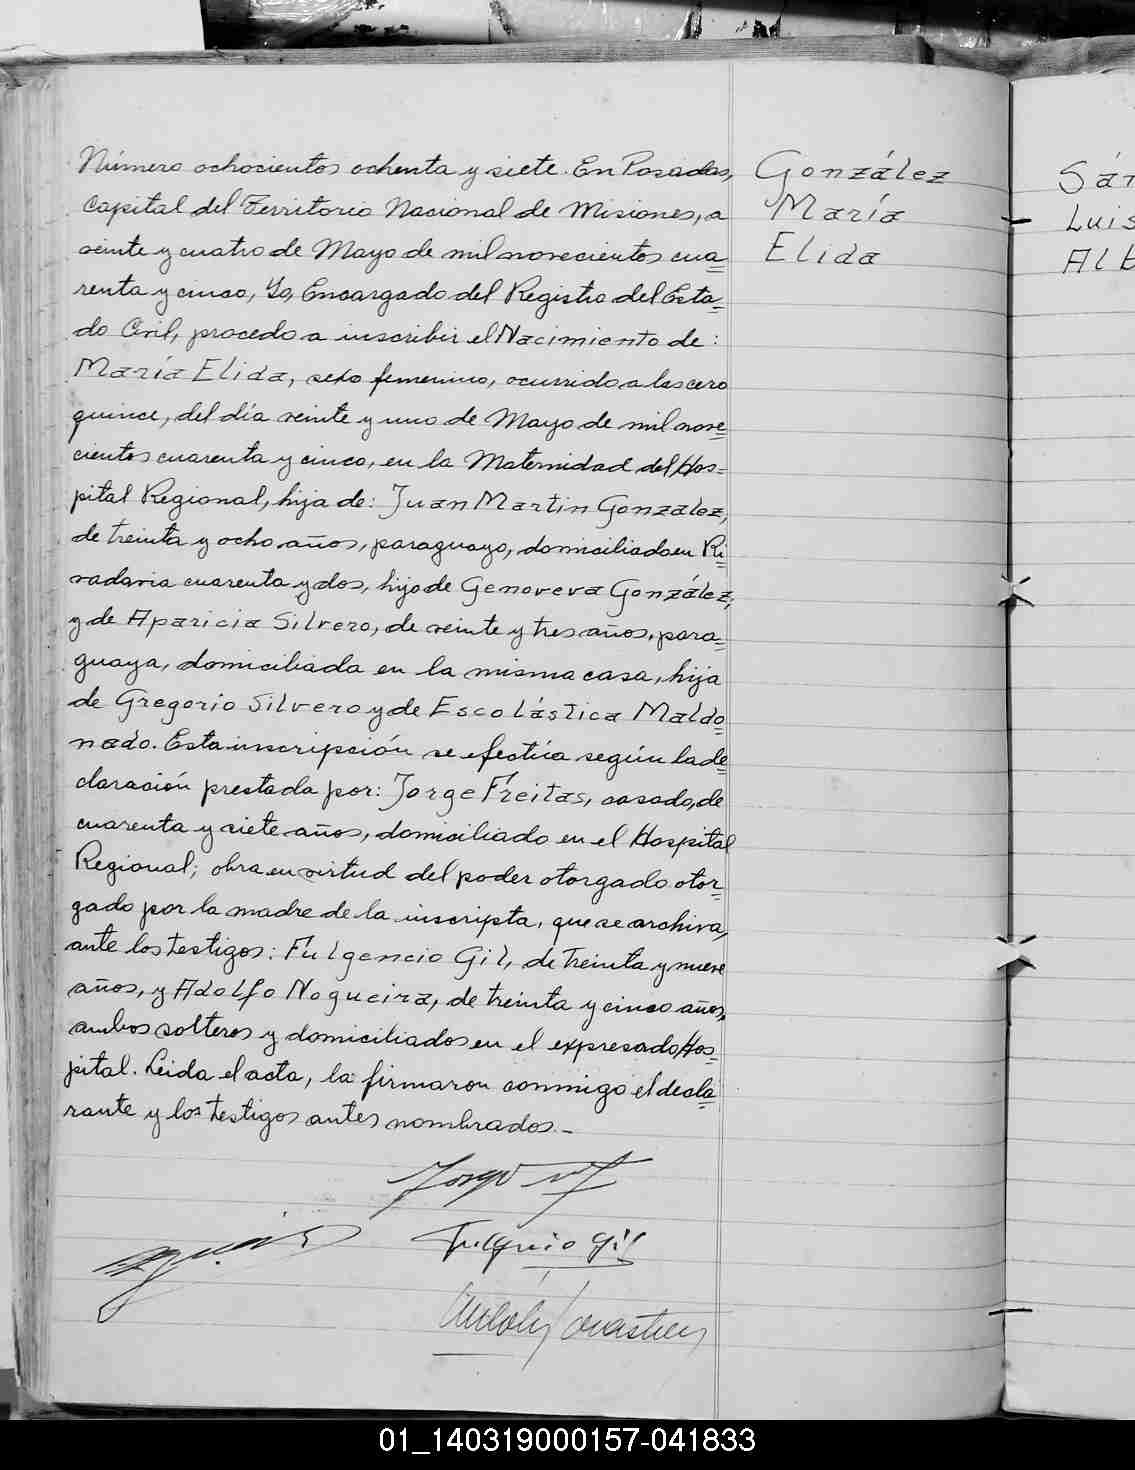 Número ochocientos ochenta y siete. En Posadas,
Capital del Territorio Nacional de Misiones, a
veinte y cuatro de Mayo de mil novecientos cua=
renta y cinco, Yo, Encargado del Registro del Esta=
do Civil, procedo a inscribir el Nacimiento de:
María Elida, sexo femenino, ocurrido a las cero
quince, del día veinte y uno de Mayo de mil nove=
cientos cuarenta y cinco, en la Maternidad del Hos=
pital Regional, hija de: Juan Martin Gonzalez,
de treinta y ocho años, paraguayo, domiciliado en Ri=
vadavia cuarenta y dos, hijo de Genoveva González,
y de Aparicia Silvero, de veinte y tres años, para=
guaya, domiciliada en la misma casa, hija
de Gregorio Silvero y de Escolástica Maldo=
nado. Esta inscripción se efectúa según la de=
claración prestada por: Jorge Freitas, casado, de
cuarenta y siete años, domiciliado en el Hospital
Regional; obra en virtud del poder otorgado otor=
gado por la madre de la inscripta, que se archiva,
ante los testigos: Fulgencio Gil, de treinta y nueve
años, y Adolfo Nogueira, de treinta y cinco años,
ambos solteros y domiciliados en el expresado Hos=
pital. Leida el acta, la firmaron conmigo el decla=
rante y los testigos antes nombrados.—
Jorge
Fulgencio Gil
González
María
Elida
Sán
Luis
Alb
01_140319000157-041833